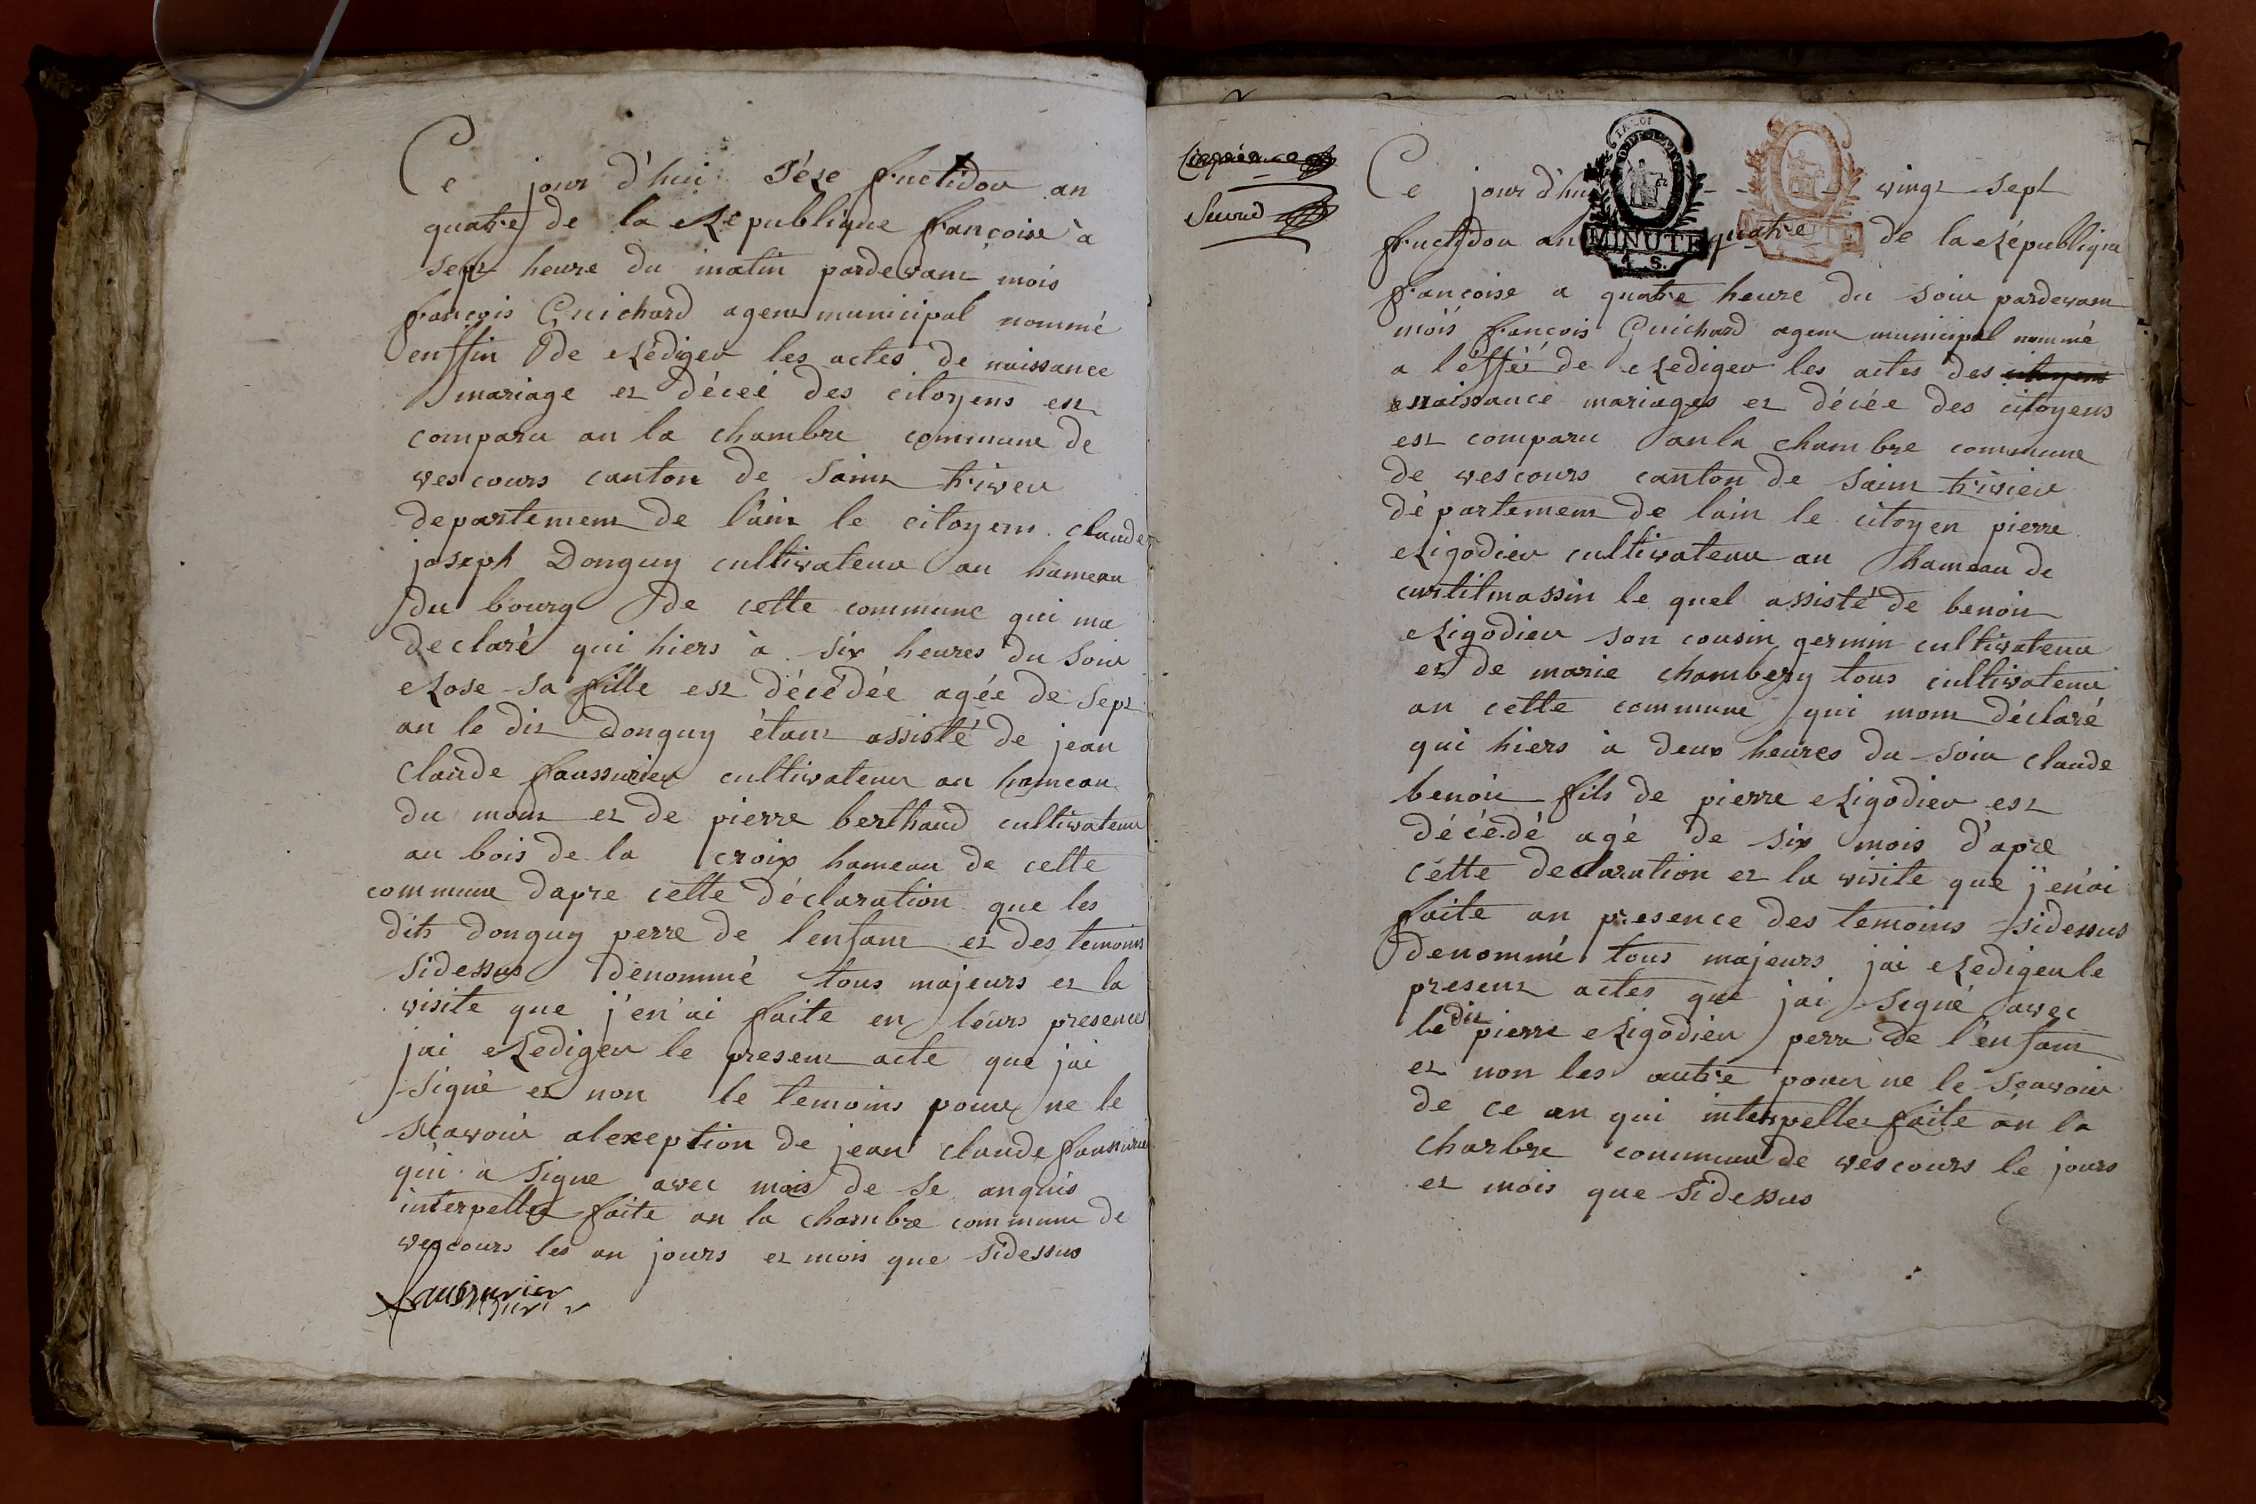 Ce jour d'hui séze fructidor an
quatre de la République françoise à
sept heure du matin pardevant mois
françois Guichard agent municipal nommé
enffin de Rédiger les actes de naissance
mariage et décée des citoyens est
comparu an la chambre commune de
vescours canton de saint triver
departement de l'ain le citoyem claude
joseph Donguy cultivateur au hameau
du bourg de cette commune qui ma
declaré qui hiers à six heures du soir
Rose sa fille est décédée agée de sept
an le dit donguy étant assisté de jean
claude faussurier cultivateur au hameau
du mont et de pierre berthaud cultivateur
au bois de la croix hameau de cette
commune dapre cette déclaration que les
dits donguy perre de l'enfant et des temoins
sidessus denommé tous majeurs et la
visite que j'en'ai faite en leurs presences
jai Rediger le present acte que jai
signé et non le temoins pour ne le
scavoir alexeption de jean claude faussurier
qui a signe avec mois de se anquis
interpeller faite an la chambre commune de
vescours les an jours et mois que sidessus
faussurier
Second
Ce jour d'hui vingt sept
MINUTE
fructidor an quatre de la République
françoise a quatre heure du soir pardevant
mois françois Guichard agent municipal nommé
a l'éffet de Rediger les actes des citoyens
naissance mariages et décée des citoyens
est comparu an la chambre commune
de vescours canton de saint trivier
département de lain le citoyen pierre
Rigodier cultivateur au hameau de
curtilmassin le quel assisté de benoit
Rigodier son cousin germin cultivateur
et de marie chambery tous cultivateur
an cette commune qui mont déclaré
qui hiers à deux heures du soir claude
benoit fils de pierre Rigodier est
décédé agé de six mois d'apre
cette declaration et la visite que j'en'ai
faite an presence des temoins sidessus
denommé tous majeurs jai Rediger le
present actes que jai signé avec
le dit pierre Rigodier perre de l'enfant
et non les autre pour ne le scavoir
de ce an qui interpeller faite an la
charbre commune de vescours le jours
et mois que sidessus